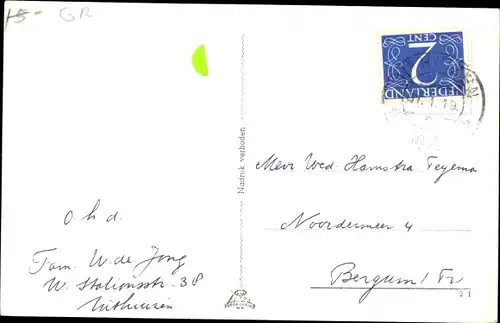 15- GR
2
CENT
NEDERLAND
Nadruk verboden
Mevr Wed. Hamstra Teyema
Noordermeer 4
Bergum / Fr
o h d.
Fam. W. de Jong
W. Stationsstr. 38
Uithuizen
21